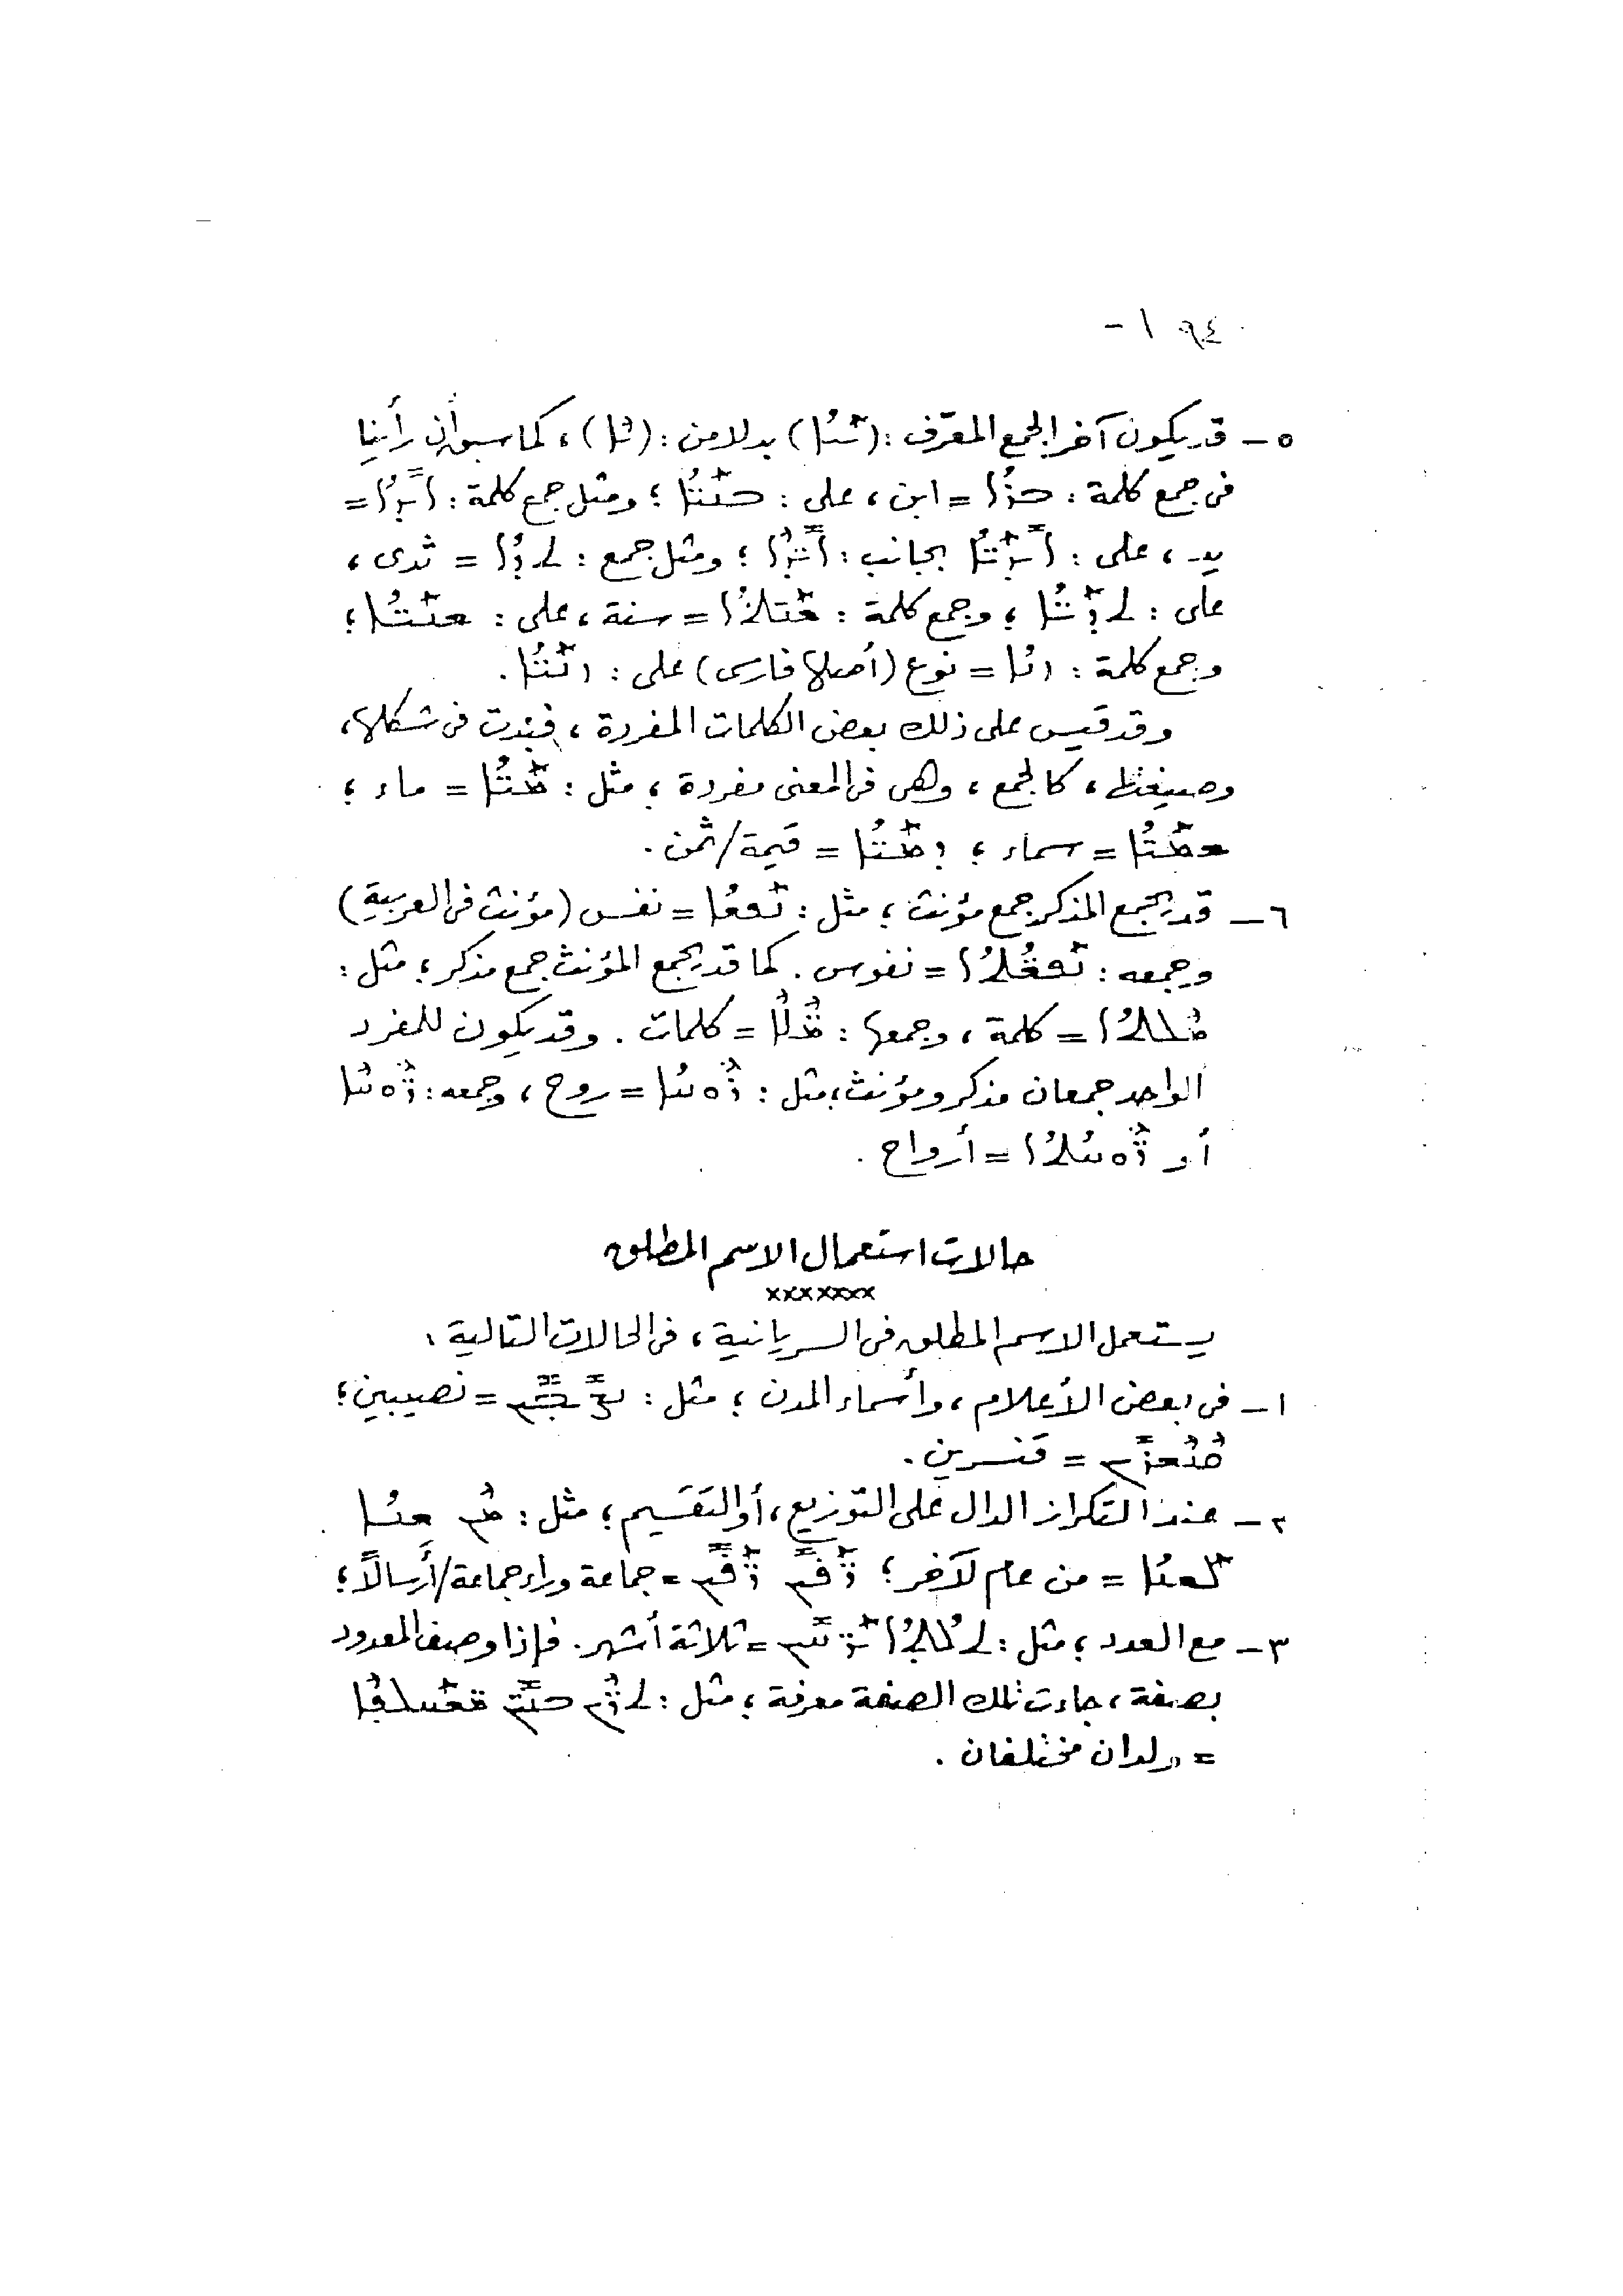 ١٩٤ -
٥ - قد يكون آخر الجمع المعرّف : (ܝܐ) بدلا من : (ܐ) ، كما سبق أن رأينا
فى جمع كلمة : ܒܪܐ = ابن ، على : ܒܢܝܐ ؛ ومثل جمع كلمة : ܐܝܕܐ =
يد ، على : ܐܝܕܝܐ بجانب : ܐܝܕܐ ؛ ومثل جمع : ܬܕܐ = ثدى ،
على : ܬܕܝܐ ؛ وجمع كلمة : ܫܢܬܐ = سنة ، على : ܫܢܝܐ ؛
وجمع كلمة : ܙܢܐ = نوع (أصلها فارسى) على : ܙܢܝܐ .
وقد قيس على ذلك بعض الكلمات المفردة ، فبدت فى شكلها ،
وصيغتها ، كالجمع ، وهى فى المعنى مفردة ؛ مثل : ܡܝܐ = ماء ؛
ܫܡܝܐ = سماء ؛ ܕܡܝܐ = قيمة/ثمن .
٦ - قد يجمع المذكر جمع مؤنث ؛ مثل : ܢܦܫܐ = نفس (مؤنث فى العربية)
وجمعه : ܢܦܫܬܐ = نفوس . كما قد يجمع المؤنث جمع مذكر ؛ مثل :
ܡܠܬܐ = كلمة ، وجمعها : ܡܠܐ = كلمات . وقد يكون للمفرد
الواحد جمعان مذكر ومؤنث ؛ مثل : ܪܘܚܐ = روح ، وجمعه : ܪܘܚܐ
أو ܪܘܚܬܐ = أرواح .
حالات استعمال الاسم المطلق
×××××××
يستعمل الاسم المطلق فى السريانية ، فى الحالات التالية :
١ - فى بعض الأعلام ، وأسماء المدن ؛ مثل : ܢܨܝܒܝܢ = نصيبين ؛
= قنسرين .
٢ - عند التكرار الدال على التوزيع ، أو التقسيم ؛ مثل : ܡܢ ܫܢܐ
ܠܫܢܐ = من عام لآخر ؛ ܪܦܝܢ ܪܦܝܢ = جماعة وراء جماعة/أرسالاً ؛
٣ - مع العدد ؛ مثل : ܬܠܬܐ ܝܪܚܝܢ = ثلاثة أشهر . فإذا وصف المعدود
بصفة ، جاءت تلك الصفة معرفة ؛ مثل : ܬܪܝܢ ܒܢܝܢ ܡܫܚܠܦܐ
= ولدان مختلفان .